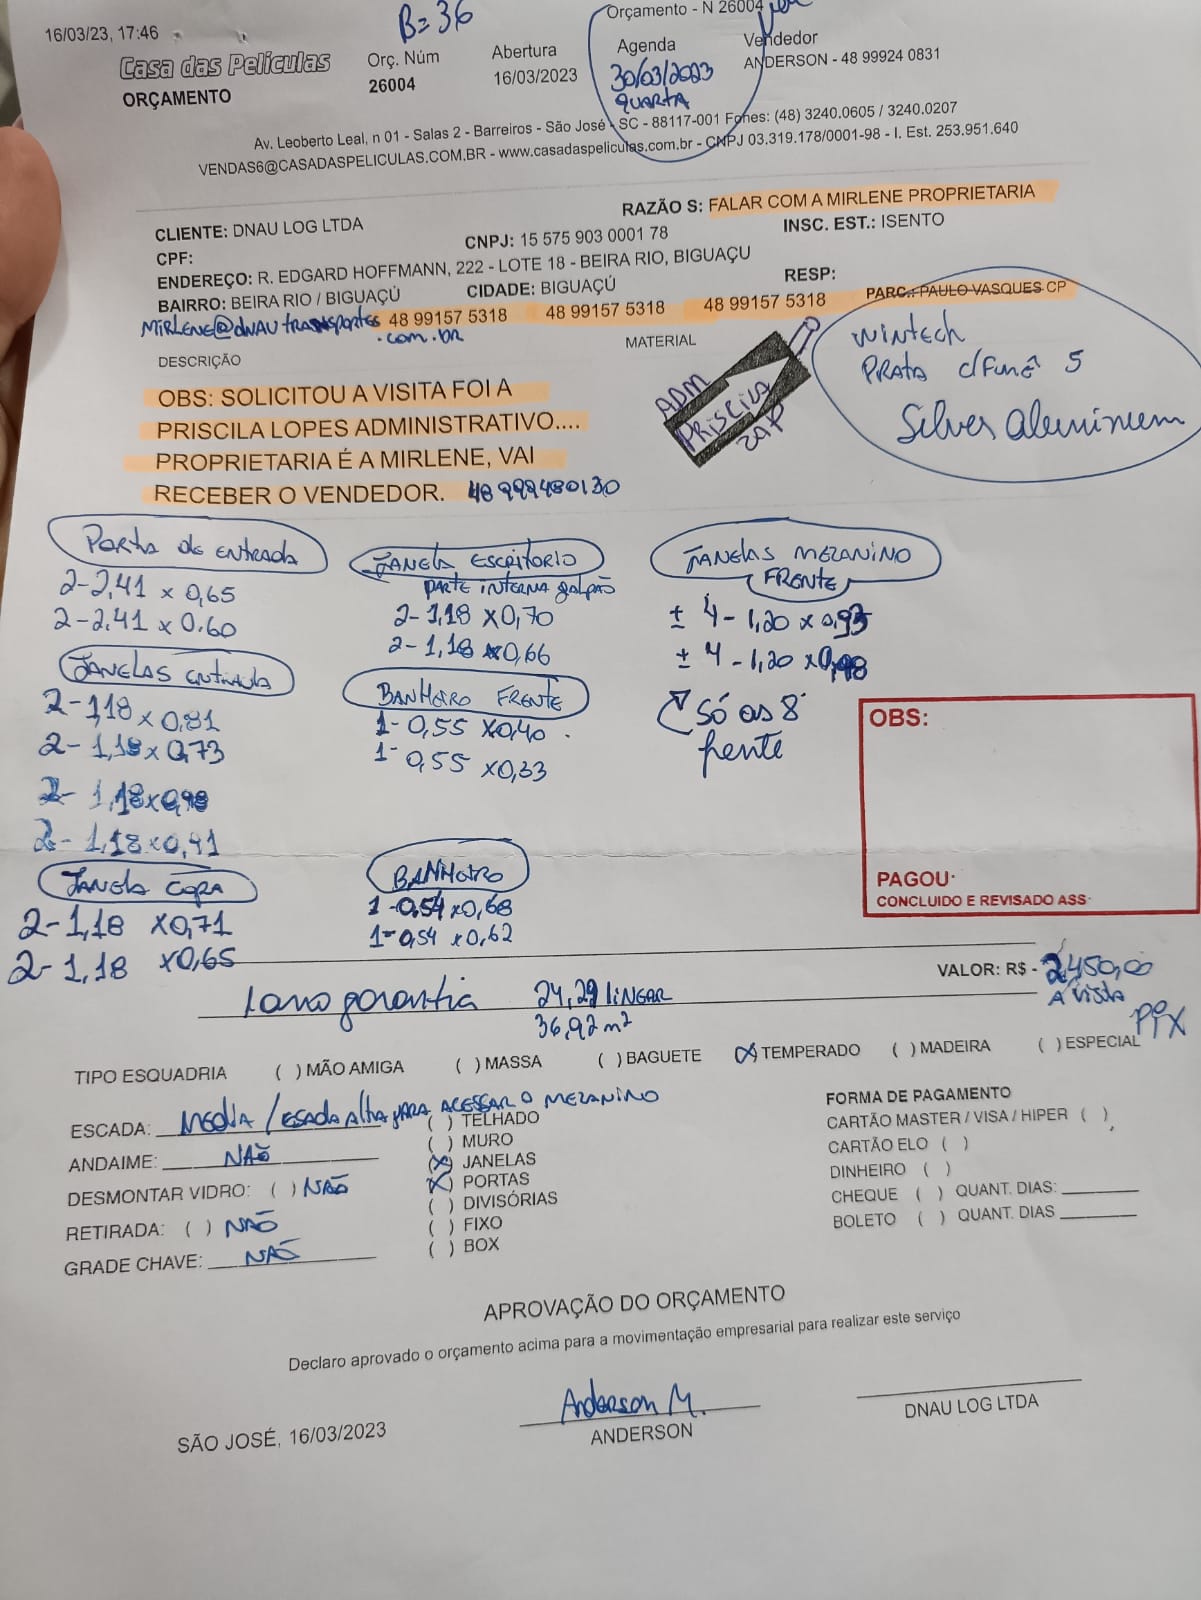 16/03/23, 17:46
B=36
Orçamento - N 26004
Casa das Películas
ORÇAMENTO
Orç. Núm
26004
Abertura
16/03/2023
Agenda
30/03/2023
QUARTA
Vendedor
ANDERSON - 48 99924 0831
Av. Leoberto Leal, n 01 - Salas 2 - Barreiros - São José - SC - 88117-001 Fones: (48) 3240.0605 / 3240.0207
VENDAS6@CASADASPELICULAS.COM.BR - www.casadaspeliculas.com.br - CNPJ 03.319.178/0001-98 - I. Est. 253.951.640
CLIENTE: DNAU LOG LTDA
RAZÃO S: FALAR COM A MIRLENE PROPRIETARIA
CPF:
CNPJ: 15 575 903 0001 78
INSC. EST.: ISENTO
ENDEREÇO: R. EDGARD HOFFMANN, 222 - LOTE 18 - BEIRA RIO, BIGUAÇU
BAIRRO: BEIRA RIO / BIGUAÇÚ
CIDADE: BIGUAÇÚ
RESP:
MIRLENE@DNAUtransportes.com.br
48 99157 5318 48 99157 5318 48 99157 5318
PARC.: PAULO VASQUES CP
DESCRIÇÃO
MATERIAL
Wintech
Prata c/Fumê 5
Silver aluminium
OBS: SOLICITOU A VISITA FOI A
PRISCILA LOPES ADMINISTRATIVO....
PROPRIETARIA É A MIRLENE, VAI
RECEBER O VENDEDOR. 48 999480130
ADM
PRISCILA
ZAP
Porta de entrada
2-2,41 x 0,65
2-2,41 x 0.60
Janelas entrada
2-1,18 x 0,81
2-1,18 x 0,73
2-1,18x0,98
2-1,18x0,91
Janela copa
2-1,18 x0,71
2-1,18 x0,65
Janela Escritorio
parte interna galpão
2-1,18 x0,70
2-1,18 x0,66
Banheiro Frente
1-0,55 x0,40
1-0,55 x0,33
Banheiro
1-0,54x0,68
1-0,54 x0,62
Janelas Mezanino
Frente
± 4-1,20 x 0,93
± 4-1,20 x0,98
Só as 8
frente
OBS:
PAGOU:
CONCLUIDO E REVISADO ASS:
VALOR: R$ - 2450,00
A vista
PIX
1 ano garantia
24,29 linear
36,92 m²
TIPO ESQUADRIA ( ) MÃO AMIGA ( ) MASSA ( ) BAGUETE (X) TEMPERADO ( ) MADEIRA ( ) ESPECIAL
ESCADA: Media / escada alta para acessar o mezanino
ANDAIME: NÃO
DESMONTAR VIDRO: ( ) NÃO
RETIRADA: ( ) NÃO
GRADE CHAVE: NÃO
( ) TELHADO
( ) MURO
(X) JANELAS
(X) PORTAS
( ) DIVISÓRIAS
( ) FIXO
( ) BOX
FORMA DE PAGAMENTO
CARTÃO MASTER / VISA / HIPER ( )
CARTÃO ELO ( )
DINHEIRO ( )
CHEQUE ( ) QUANT. DIAS:
BOLETO ( ) QUANT. DIAS
APROVAÇÃO DO ORÇAMENTO
Declaro aprovado o orçamento acima para a movimentação empresarial para realizar este serviço
SÃO JOSÉ, 16/03/2023
Anderson M.
ANDERSON
DNAU LOG LTDA